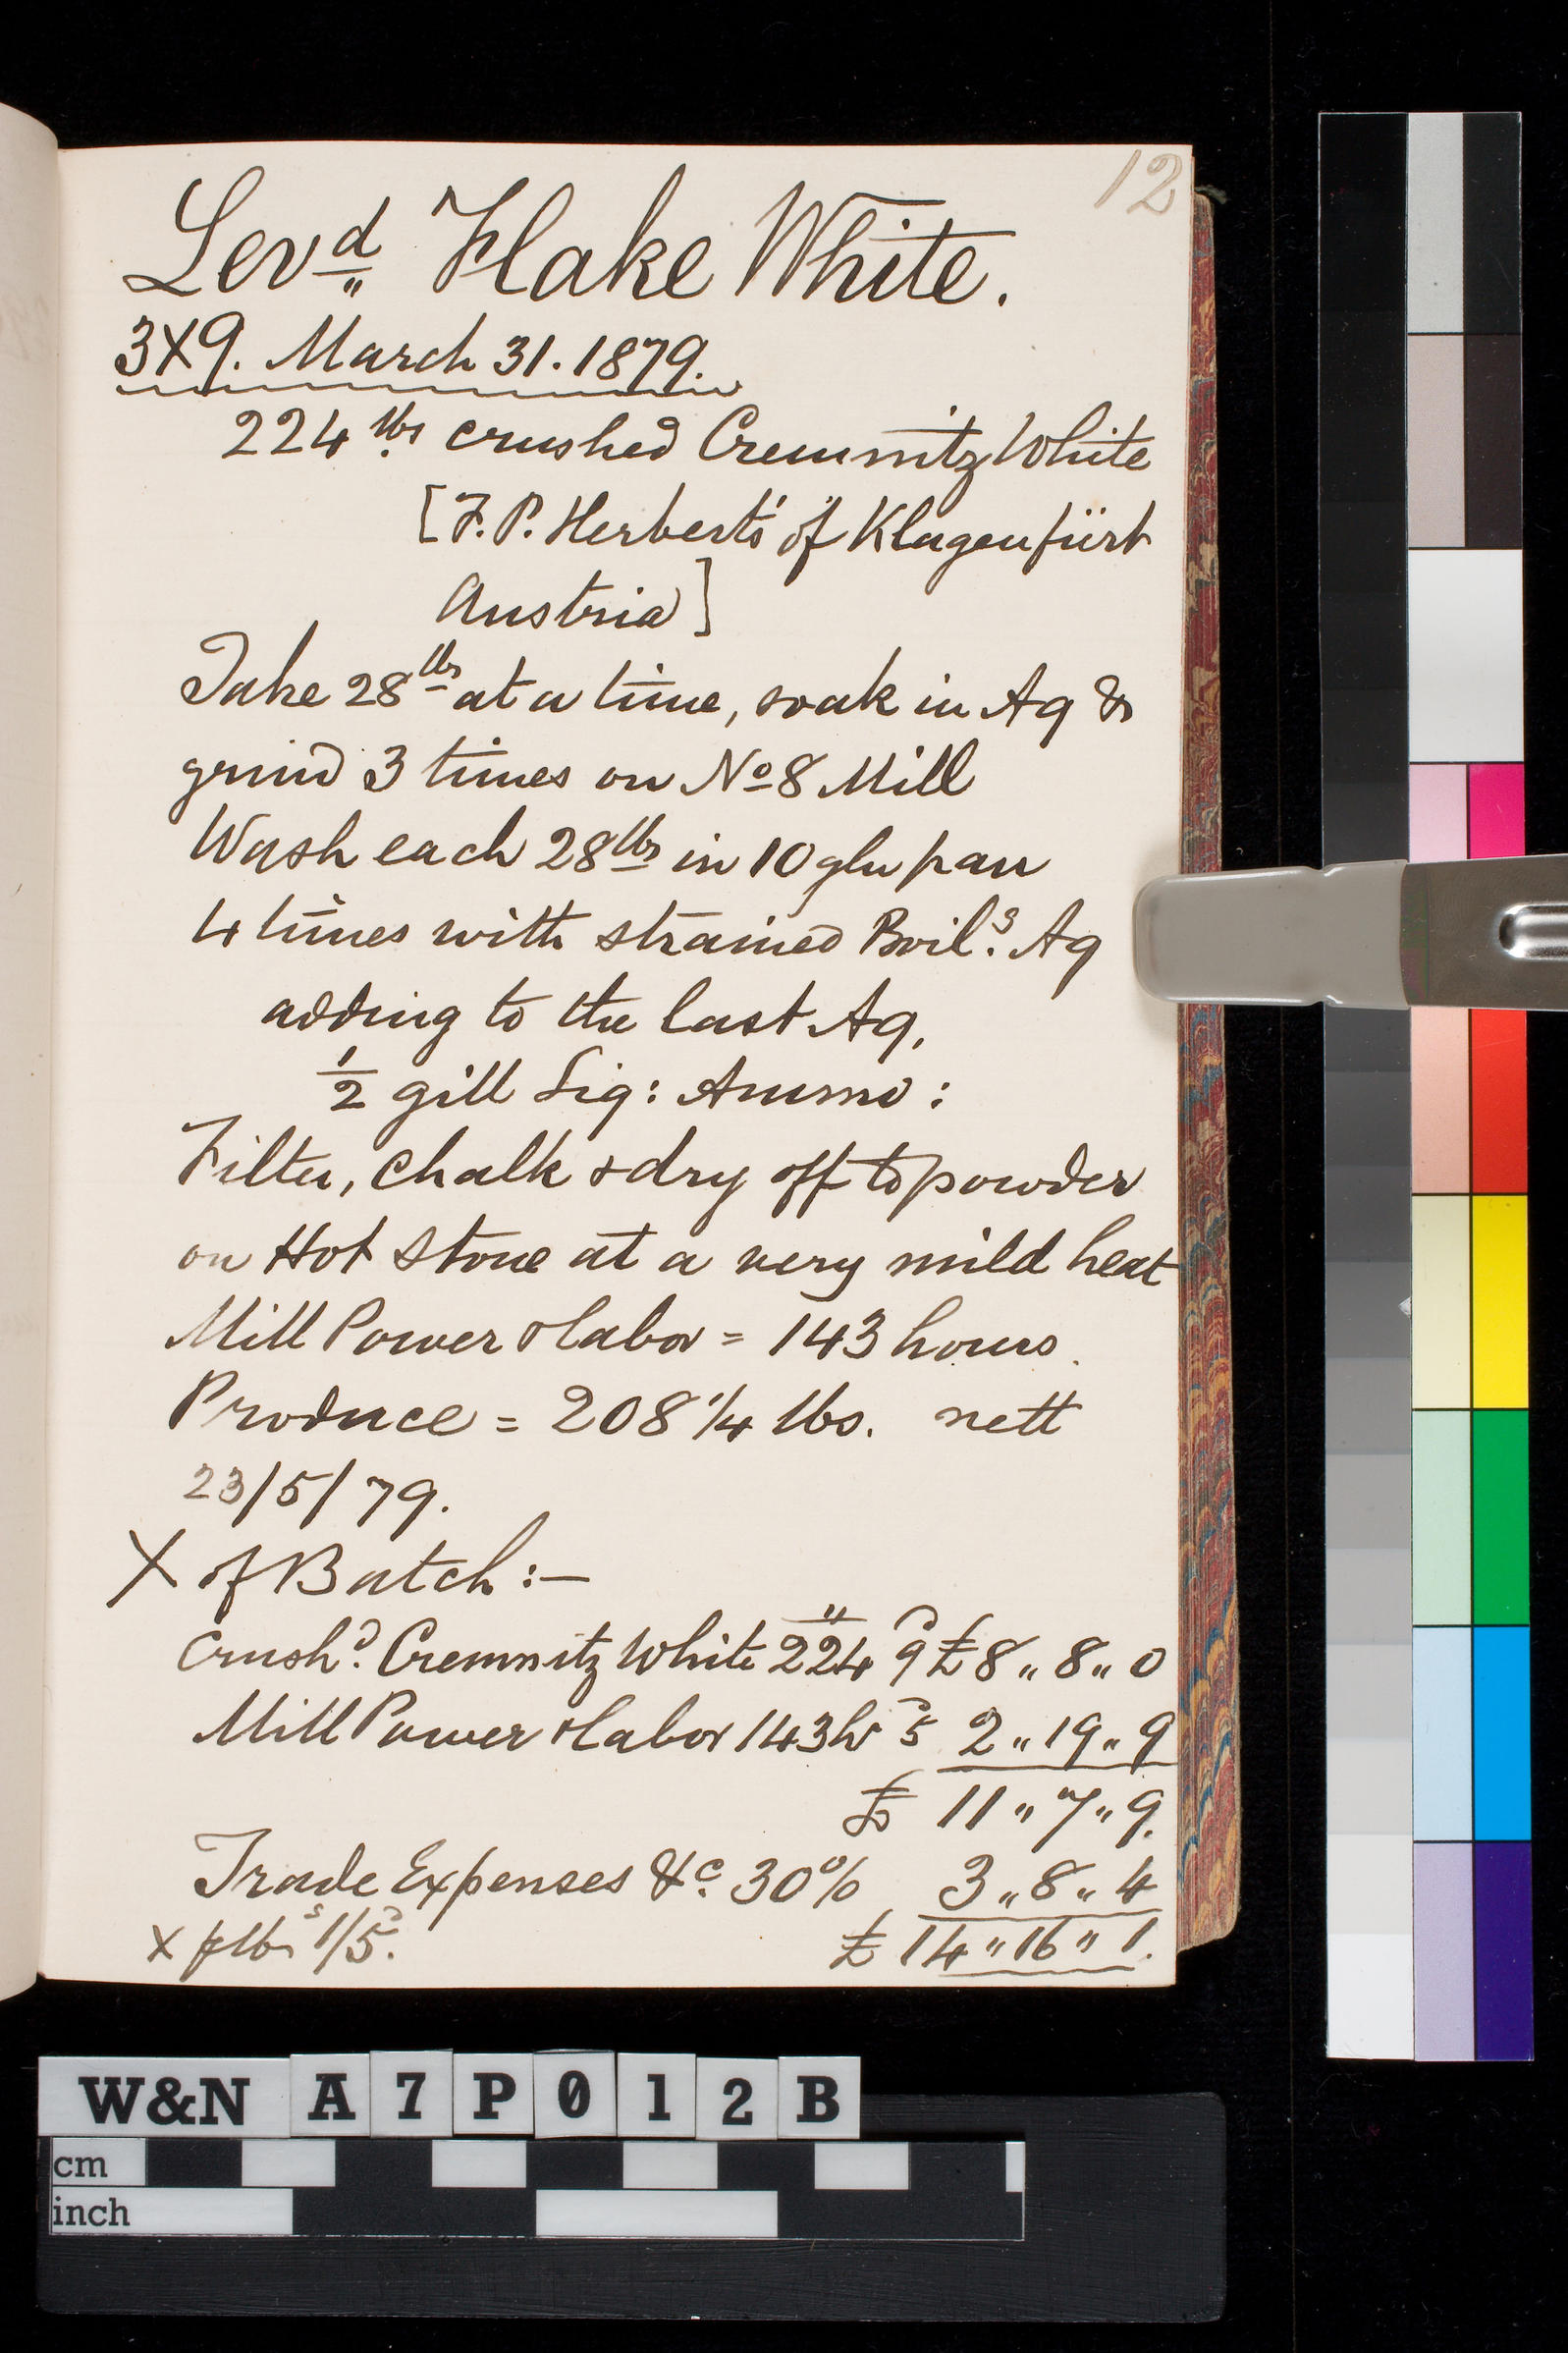 12
Levd Flake White.
3X9. March 31. 1879.
224 lbs crushed Cremnitz White
[F. P. Herberts' of Klagenfürt
Austria]
Take 28 lbs at a time, soak in Aq &
grind 3 times on No 8 Mill
Wash each 28 lbs in 10 gln pan
4 times with strained Boils. Aq
adding to the last Aq,
1/2 gill Liq: Ammo:
Filter, chalk & dry off to powder
on Hot Stone at a very mild heat
Mill Power & labor = 143 hours.
Produce = 208 1/4 lbs. nett
23/5/79.
X of Batch:—
Crushd. Cremnitz White 224 9d £8 " 8 " 0
Mill Power & labor 143 hr 5d 2 " 19 " 9
£ 11 " 7 " 9.
Trade Expenses &c. 30% 3 " 8 " 4
X p lb s 1/5d. £ 14 " 16 " 1.
W&N A 7 P 0 1 2 B
cm
inch